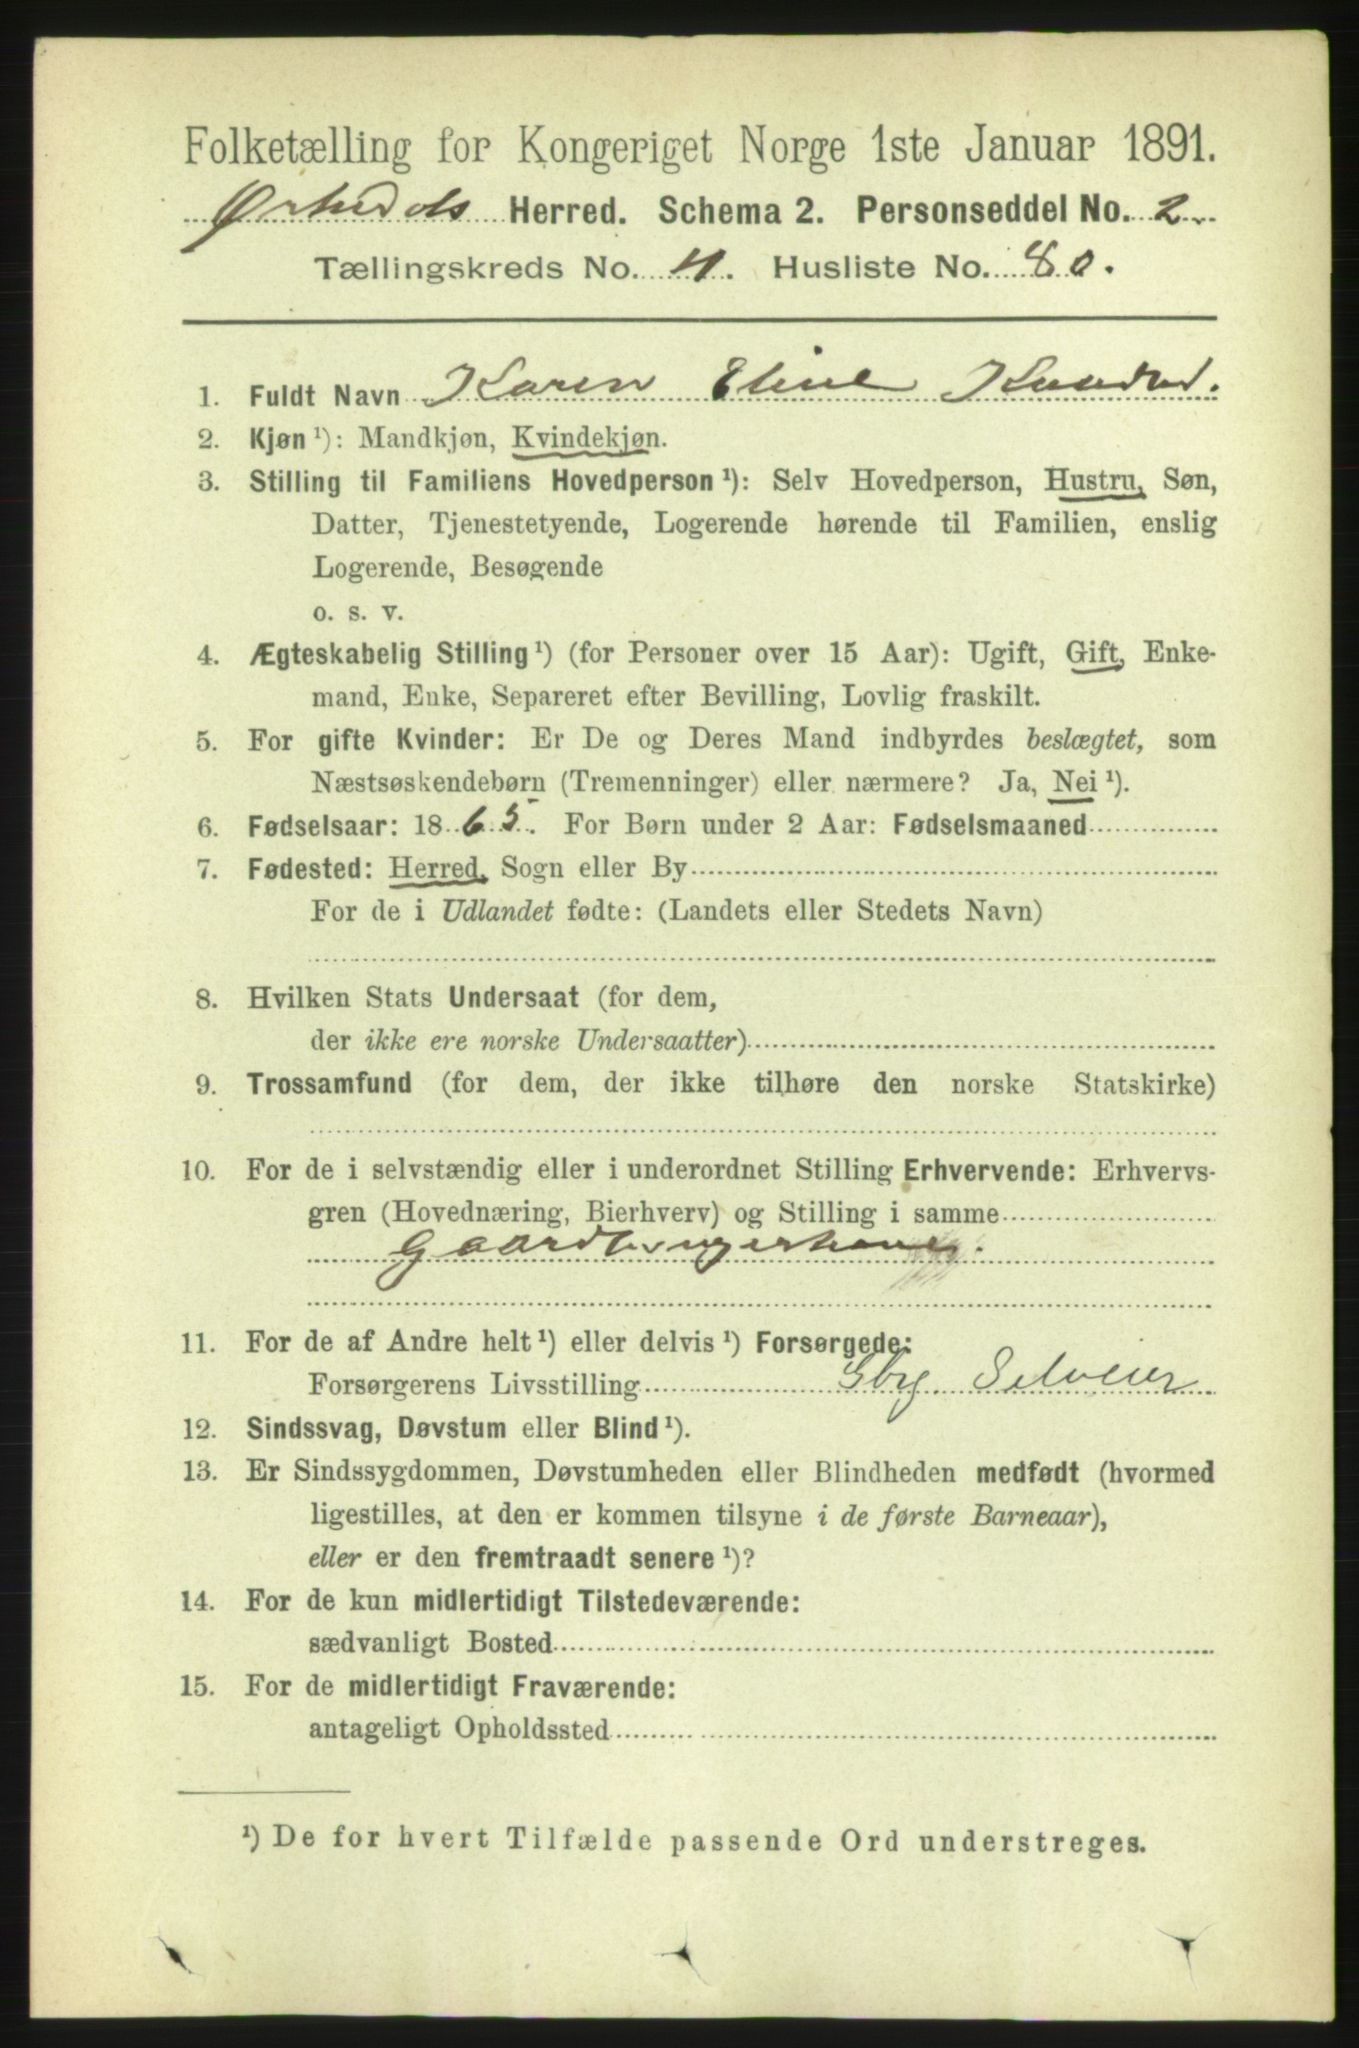 Folketælling for Kongeriget Norge 1ste Januar 1891.
Ørkedals Herred. Schema 2. Personseddel No. 2.
Tællingskreds No. 4. Husliste No. 80.
1. Fuldt Navn Karen Eline
2. Kjøn ¹): Mandkjøn, Kvindekjøn.
3. Stilling til Familiens Hovedperson ¹): Selv Hovedperson, Hustru, Søn,
Datter, Tjenestetyende, Logerende hørende til Familien, enslig
Logerende, Besøgende
o. s. v.
4. Ægteskabelig Stilling ¹) (for Personer over 15 Aar): Ugift, Gift, Enke-
mand, Enke, Separeret efter Bevilling, Lovlig fraskilt.
5. For gifte Kvinder: Er De og Deres Mand indbyrdes beslægtet, som
Næstsøskendebørn (Tremenninger) eller nærmere? Ja, Nei ¹).
6. Fødselsaar: 1865. For Børn under 2 Aar: Fødselsmaaned
7. Fødested: Herred, Sogn eller By
For de i Udlandet fødte: (Landets eller Stedets Navn)
8. Hvilken Stats Undersaat (for dem,
der ikke ere norske Undersaatter)
9. Trossamfund (for dem, der ikke tilhøre den norske Statskirke)
10. For de i selvstændig eller i underordnet Stilling Erhvervende: Erhvervs-
gren (Hovednæring, Bierhverv) og Stilling i samme
11. For de af Andre helt ¹) eller delvis ¹) Forsørgede:
Forsørgerens Livsstilling Gbrg. Selveier
12. Sindssvag, Døvstum eller Blind ¹).
13. Er Sindssygdommen, Døvstumheden eller Blindheden medfødt (hvormed
ligestilles, at den er kommen tilsyne i de første Barneaar),
eller er den fremtraadt senere ¹)?
14. For de kun midlertidigt Tilstedeværende:
sædvanligt Bosted
15. For de midlertidigt Fraværende:
antageligt Opholdssted
¹) De for hvert Tilfælde passende Ord understreges.